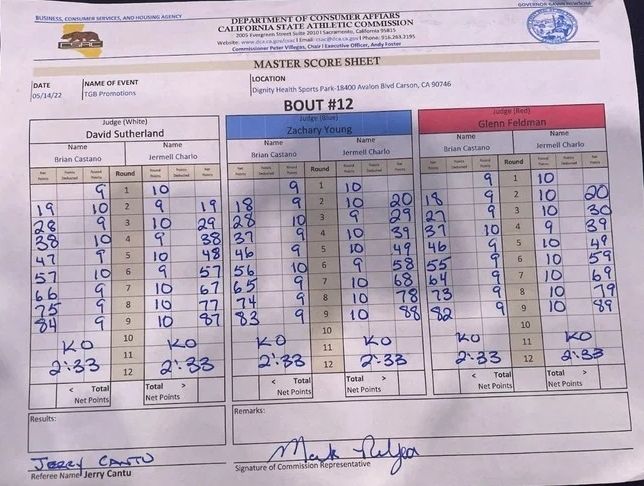 BUSINESS, CONSUMER SERVICES, AND HOUSING AGENCY
GOVERNOR GAVIN NEWSOM
DEPARTMENT OF CONSUMER AFFAIRS
CALIFORNIA STATE ATHLETIC COMMISSION
2005 Evergreen Street Suite 2010 | Sacramento, California 95815
Website: www.dca.ca.gov/csac | Email: csac@dca.ca.gov | Phone: 916.263.2195
Commissioner Peter Villegas, Chair | Executive Officer, Andy Foster
CSAC
MASTER SCORE SHEET
DATE NAME OF EVENT LOCATION
05/14/22 TGB Promotions Dignity Health Sports Park-18400 Avalon Blvd Carson, CA 90746
BOUT #12
Judge (White) Judge (Blue) Judge (Red)
David Sutherland Zachary Young Glenn Feldman
Name Name Name Name Name Name
Brian Castano Jermell Charlo Brian Castano Jermell Charlo Brian Castano Jermell Charlo
Net Points Points Deducted Round Points Round Round Points Points Deducted Net Points Net Points Points Deducted Round Points Round Round Points Points Deducted Net Points Net Points Points Deducted Round Points Round Round Points Points Deducted Net Points
9 1 10 9 1 10 9 1 10
19 10 2 9 19 18 9 2 10 20 18 9 2 10 20
28 9 3 10 29 28 10 3 9 29 27 9 3 10 30
38 10 4 9 38 37 9 4 10 39 37 10 4 9 39
47 9 5 10 48 46 9 5 10 49 46 9 5 10 49
57 10 6 9 57 56 10 6 9 58 55 9 6 10 59
66 9 7 10 67 65 9 7 10 68 64 9 7 10 69
75 9 8 10 77 74 9 8 10 78 73 9 8 10 79
84 9 9 10 87 83 9 9 10 88 82 9 9 10 89
KO 10 KO KO 10 KO KO 10 KO
11 11 11
2:33 12 2:33 2:33 12 2:33 2:33 12 2:33
< Total Total > < Total Total > < Total Total >
Net Points Net Points Net Points Net Points Net Points Net Points
Results: Remarks:
JERRY CANTU
Referee Name Jerry Cantu Signature of Commission Representative